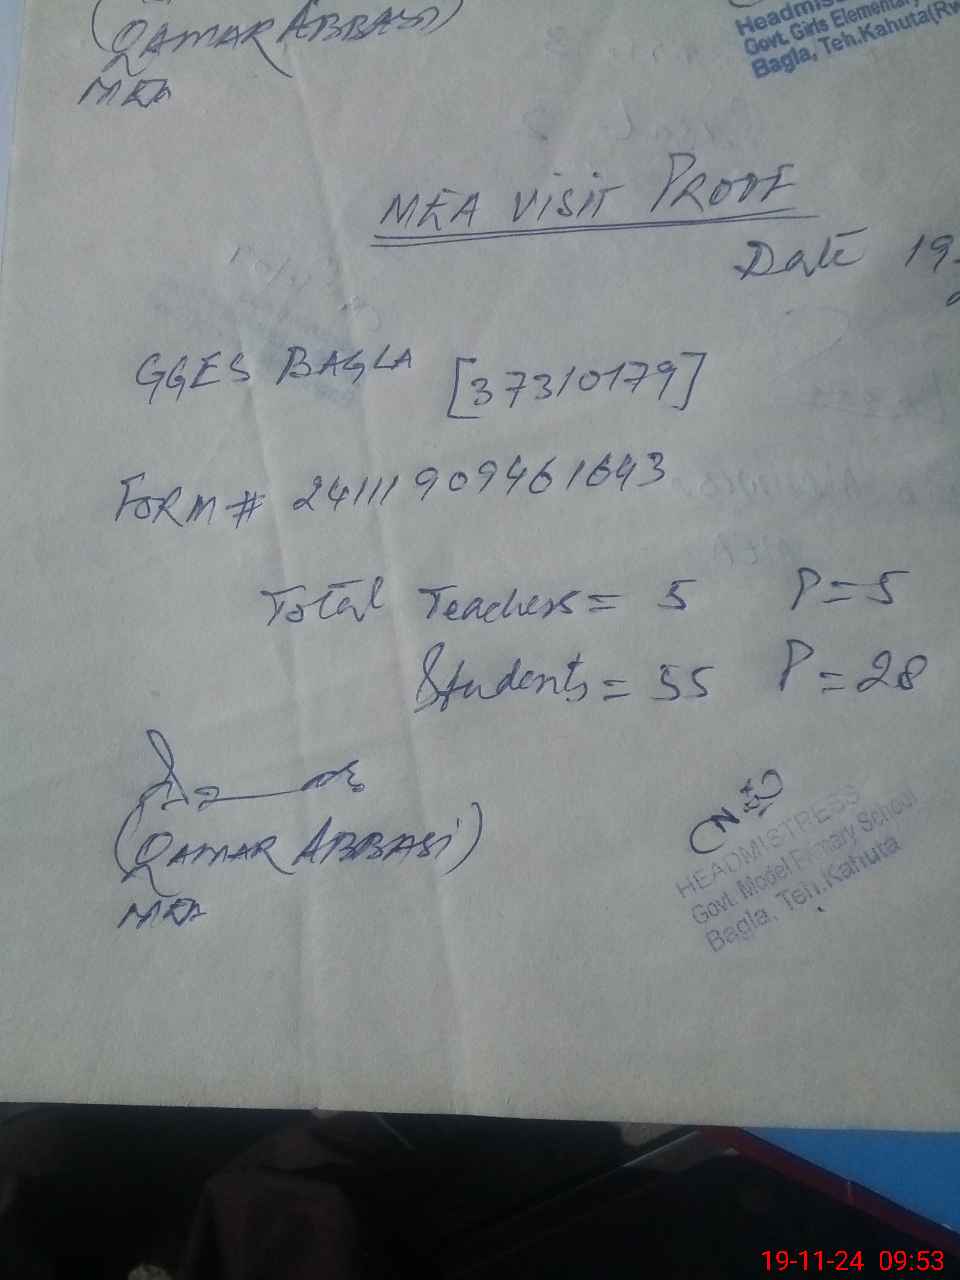 (QAMAR ABBASI)
MEA
Govt. Girls Elementary
Bagla, Teh.Kahuta(Rw
MEA VISIT PROOF
Date 19
GGES BAGLA [37310179]
FORM # 24111909461643
Total Teachers = 5 P = 5
Students = 55 P = 28
(QAMAR ABBASI)
MEA
HEADMISTRESS
Govt. Model Primary School
Bagla, Teh.Kahuta
19-11-24 09:53